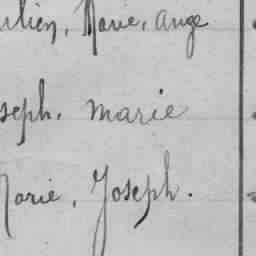 ulien, Marie, Ange
seph, Marie
Marie, Joseph.